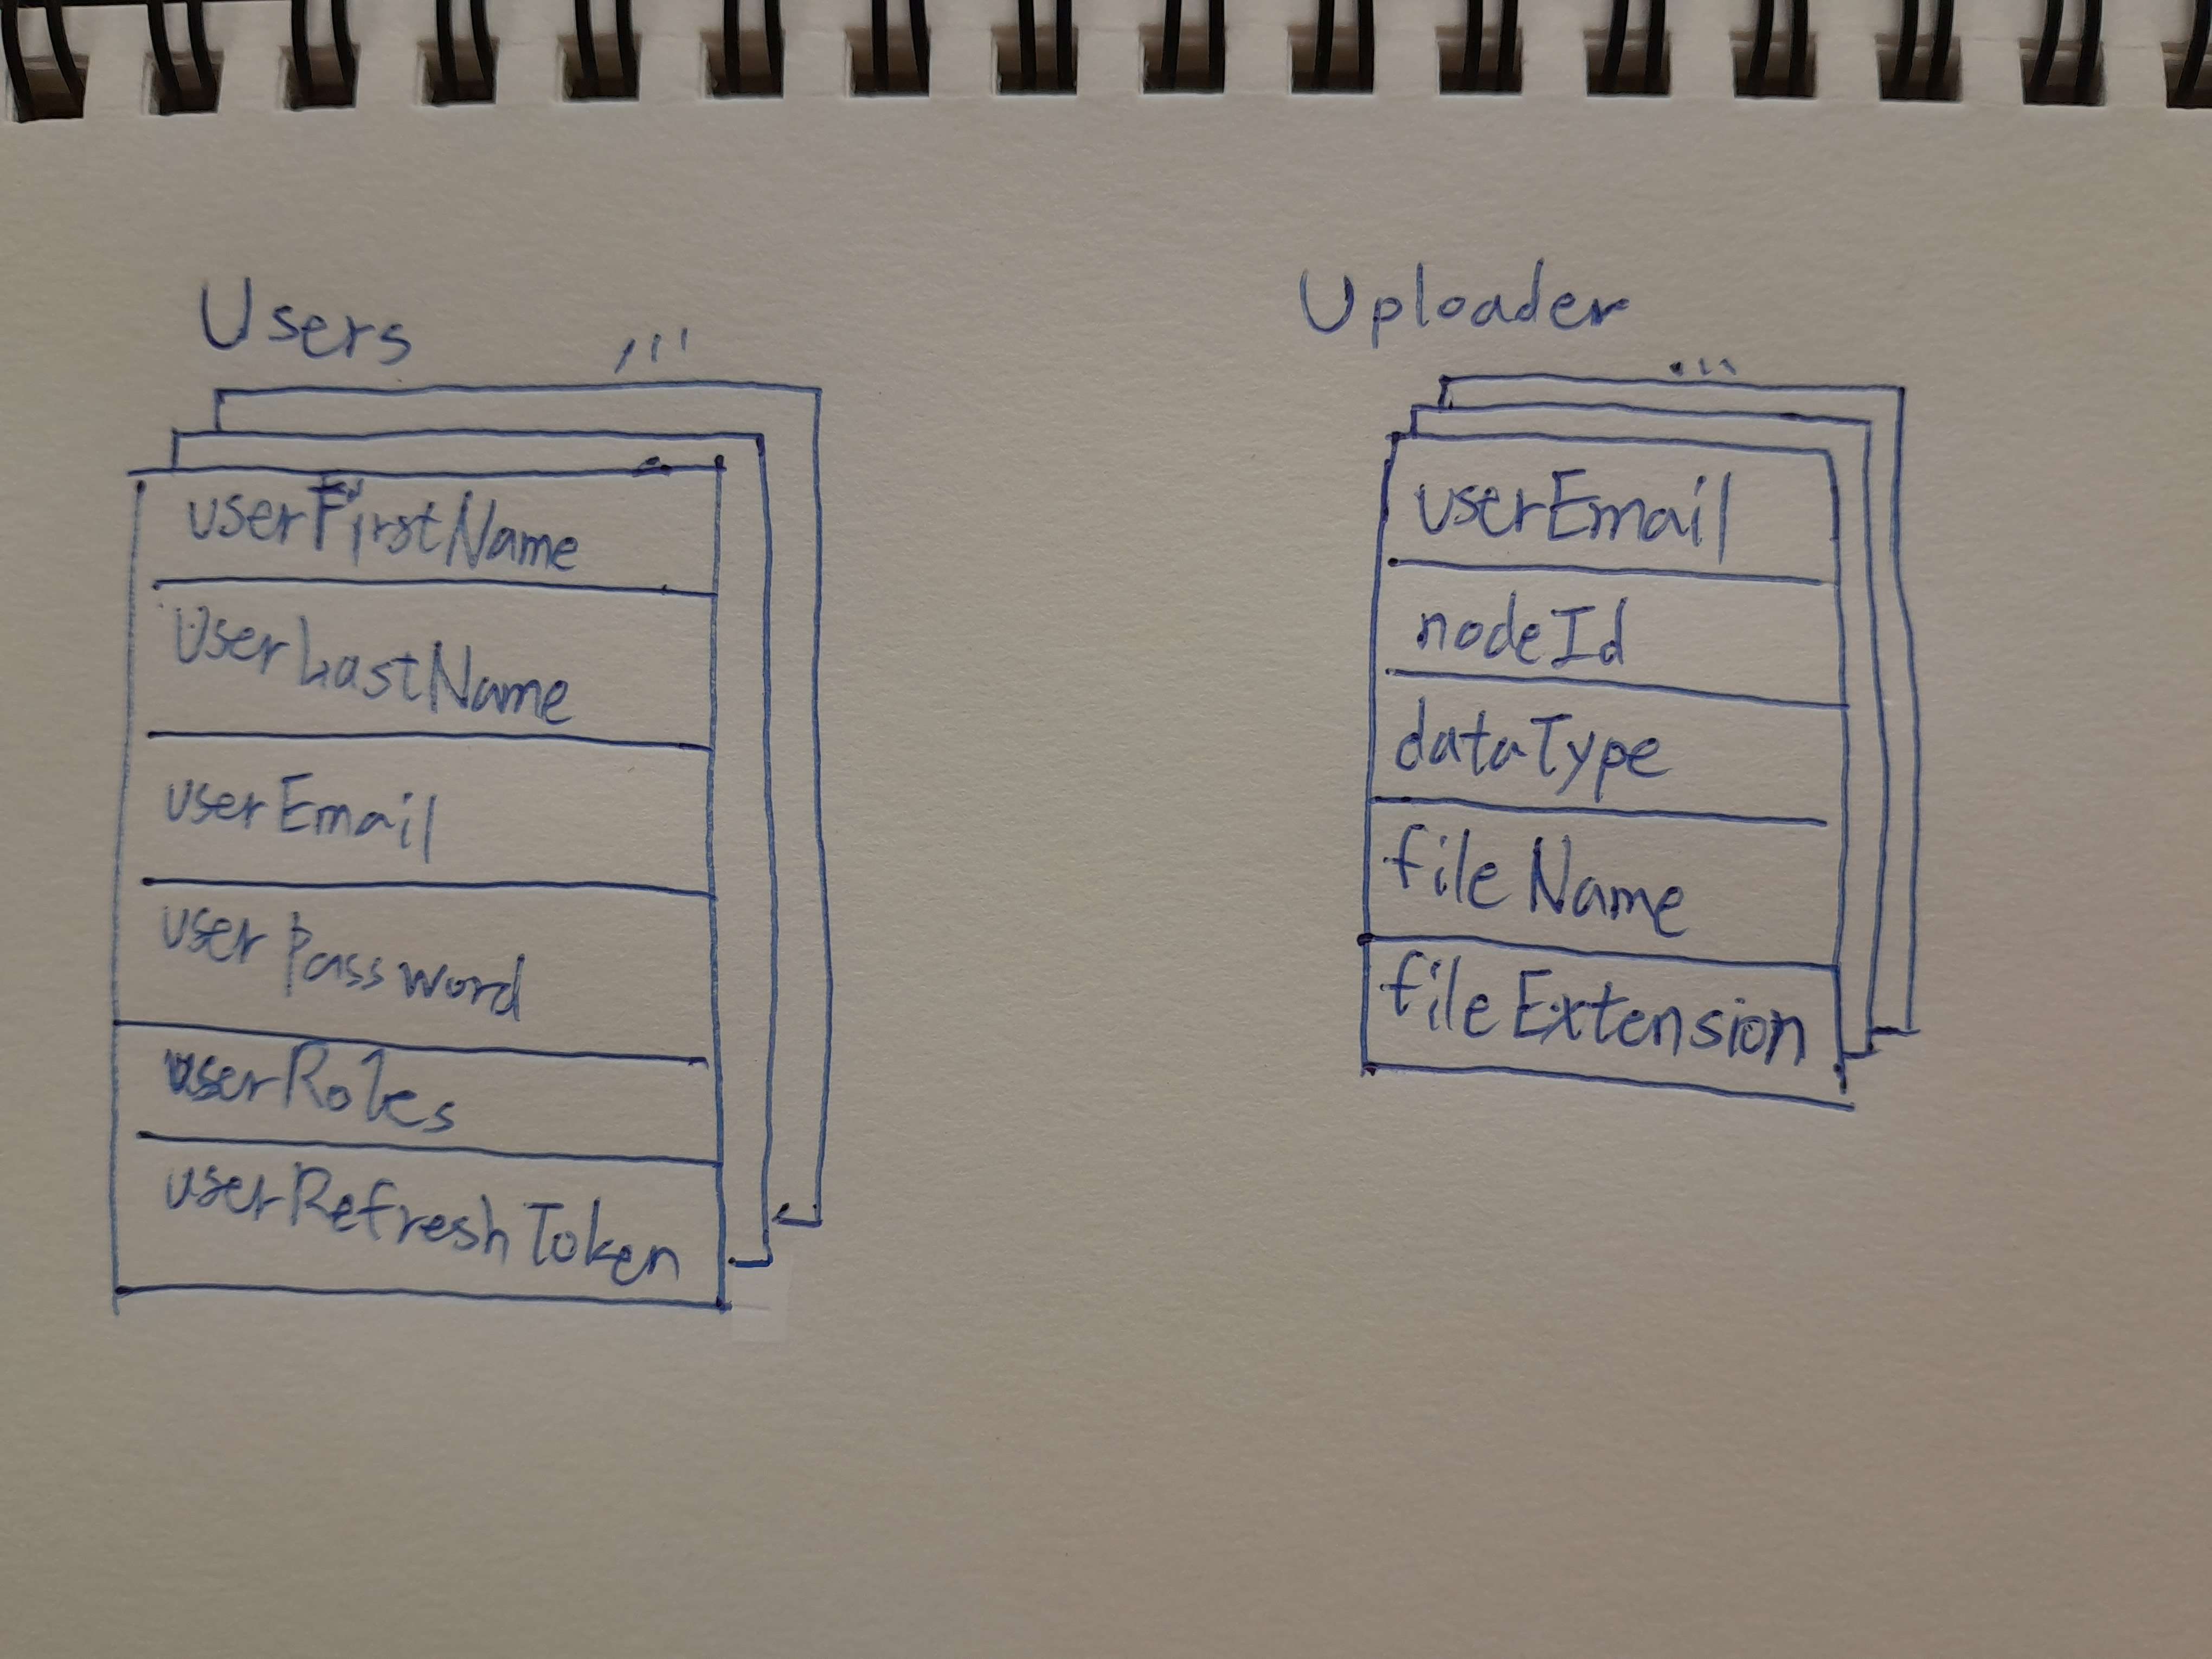 Users
...
userFirstName
userLastName
userEmail
userPassword
userRoles
userRefreshToken
Uploader
...
userEmail
nodeId
dataType
fileName
fileExtension